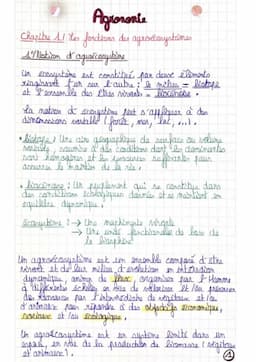 Agronomie
Chapitre 1 : Les fonctions des agroécosystèmes
1/ Notion d'agroécosystème
Un écosystème est constitué par deux éléments
réagissant l'un sur l'autre : le milieu = biotope
et l'ensemble des êtres vivants = biocénose.
La notion d'écosystème peut s'appliquer à des
dimensions variables (forêt, mer, lac, ...).
• Biotope : Une aire géographique de surface ou volume
variable, soumise à des conditions dont les dominantes
sont homogènes et les ressources suffisantes pour
assurer le maintien de la vie.
• biocénose : Un peuplement qui se constitue dans
des conditions écologiques données et se maintient en
équilibre dynamique.
Ecosystème : → Une machinerie vivante
→ Une unité fonctionnelle de base de
la biosphère
Un agroécosystème est un ensemble composé d'êtres
vivants et de leur milieu d'évolution en interaction
dynamique, animé de flux, organisé par l'Homme
à différentes échelles en vue de valoriser et/ou préserver
des ressources par l'introduction de végétaux et/ou
d'animaux pour répondre à des objectifs économiques,
sociaux et/ou écologiques.
Un agroécosystème est un système limité dans un
espace, en vue de la production de biomasse (végétaux
et animaux).
1